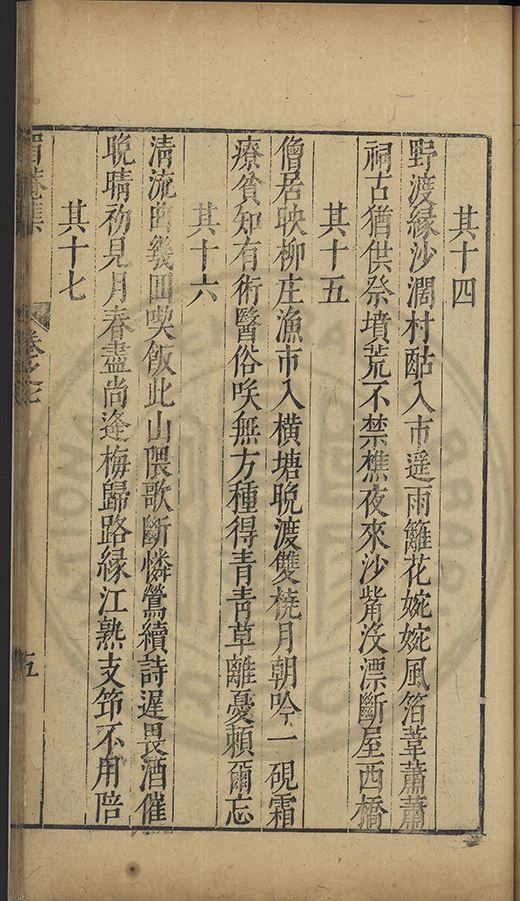 其十四
野渡緣沙濶村酤入市遥雨籬花婉婉風箔葦蕭蕭
祠古猶供祭墳荒不禁樵夜來沙觜沒漂斷屋西橋
其十五
僧居映柳庄漁市入橫塘晚渡雙橈月朝吟一硯霜
療貧知有術醫俗唉無方種得青青草離憂賴爾忘
其十六
清流曲幾回喫飯此山隈歌斷憐鶯續詩遲畏酒催
晚晴初見月春盡尚逢梅歸路緣江熟支筇不用陪
其十七
眉菴集
卷之七
五